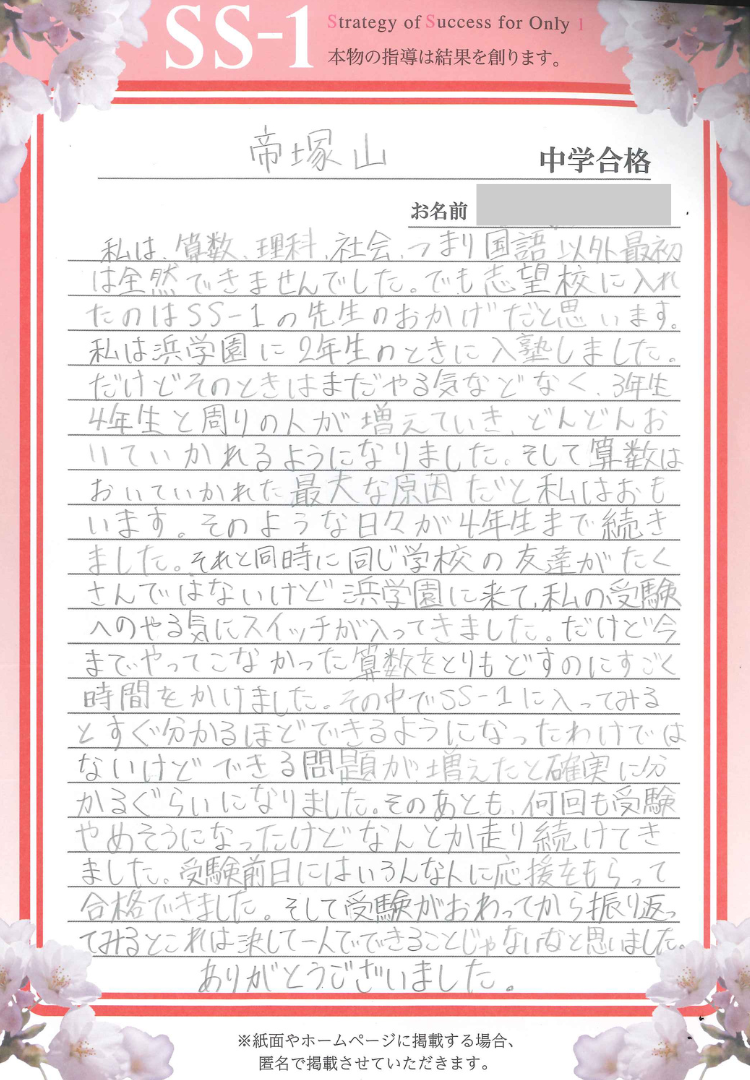 SS-1
Strategy of Success for Only 1
本物の指導は結果を創ります。
帝塚山 中学合格
お名前
私は、算数、理科、社会、つまり国語以外最初
は全然できませんでした。でも志望校に入れ
たのはSS-1の先生のおかげだと思います。
私は浜学園に2年生のときに入塾しました。
だけどそのときはまだやる気などなく、3年生
4年生と周りの人が増えていき、どんどんお
いていかれるようになりました。そして算数は
おいていかれた最大な原因だと私はおも
います。そのような日々が4年生まで続き
ました。それと同時に同じ学校の友達がたく
さんではないけど浜学園に来て、私の受験
へのやる気にスイッチが入ってきました。だけど今
までやってこなかった算数をとりもどすのにすごく
時間をかけました。その中でSS-1に入ってみる
とすぐ分かるほどできるようになったわけでは
ないけどできる問題が増えたと確実に分
かるぐらいになりました。そのあとも、何回も受験
やめそうになったけどなんとか走り続けてき
ました。受験前日にはいろんな人に応援をもらって
合格できました。そして受験がおわってから振り返っ
てみるとこれは決して一人でできることじゃないなと思いました。
ありがとうございました。
※紙面やホームページに掲載する場合、
匿名で掲載させていただきます。